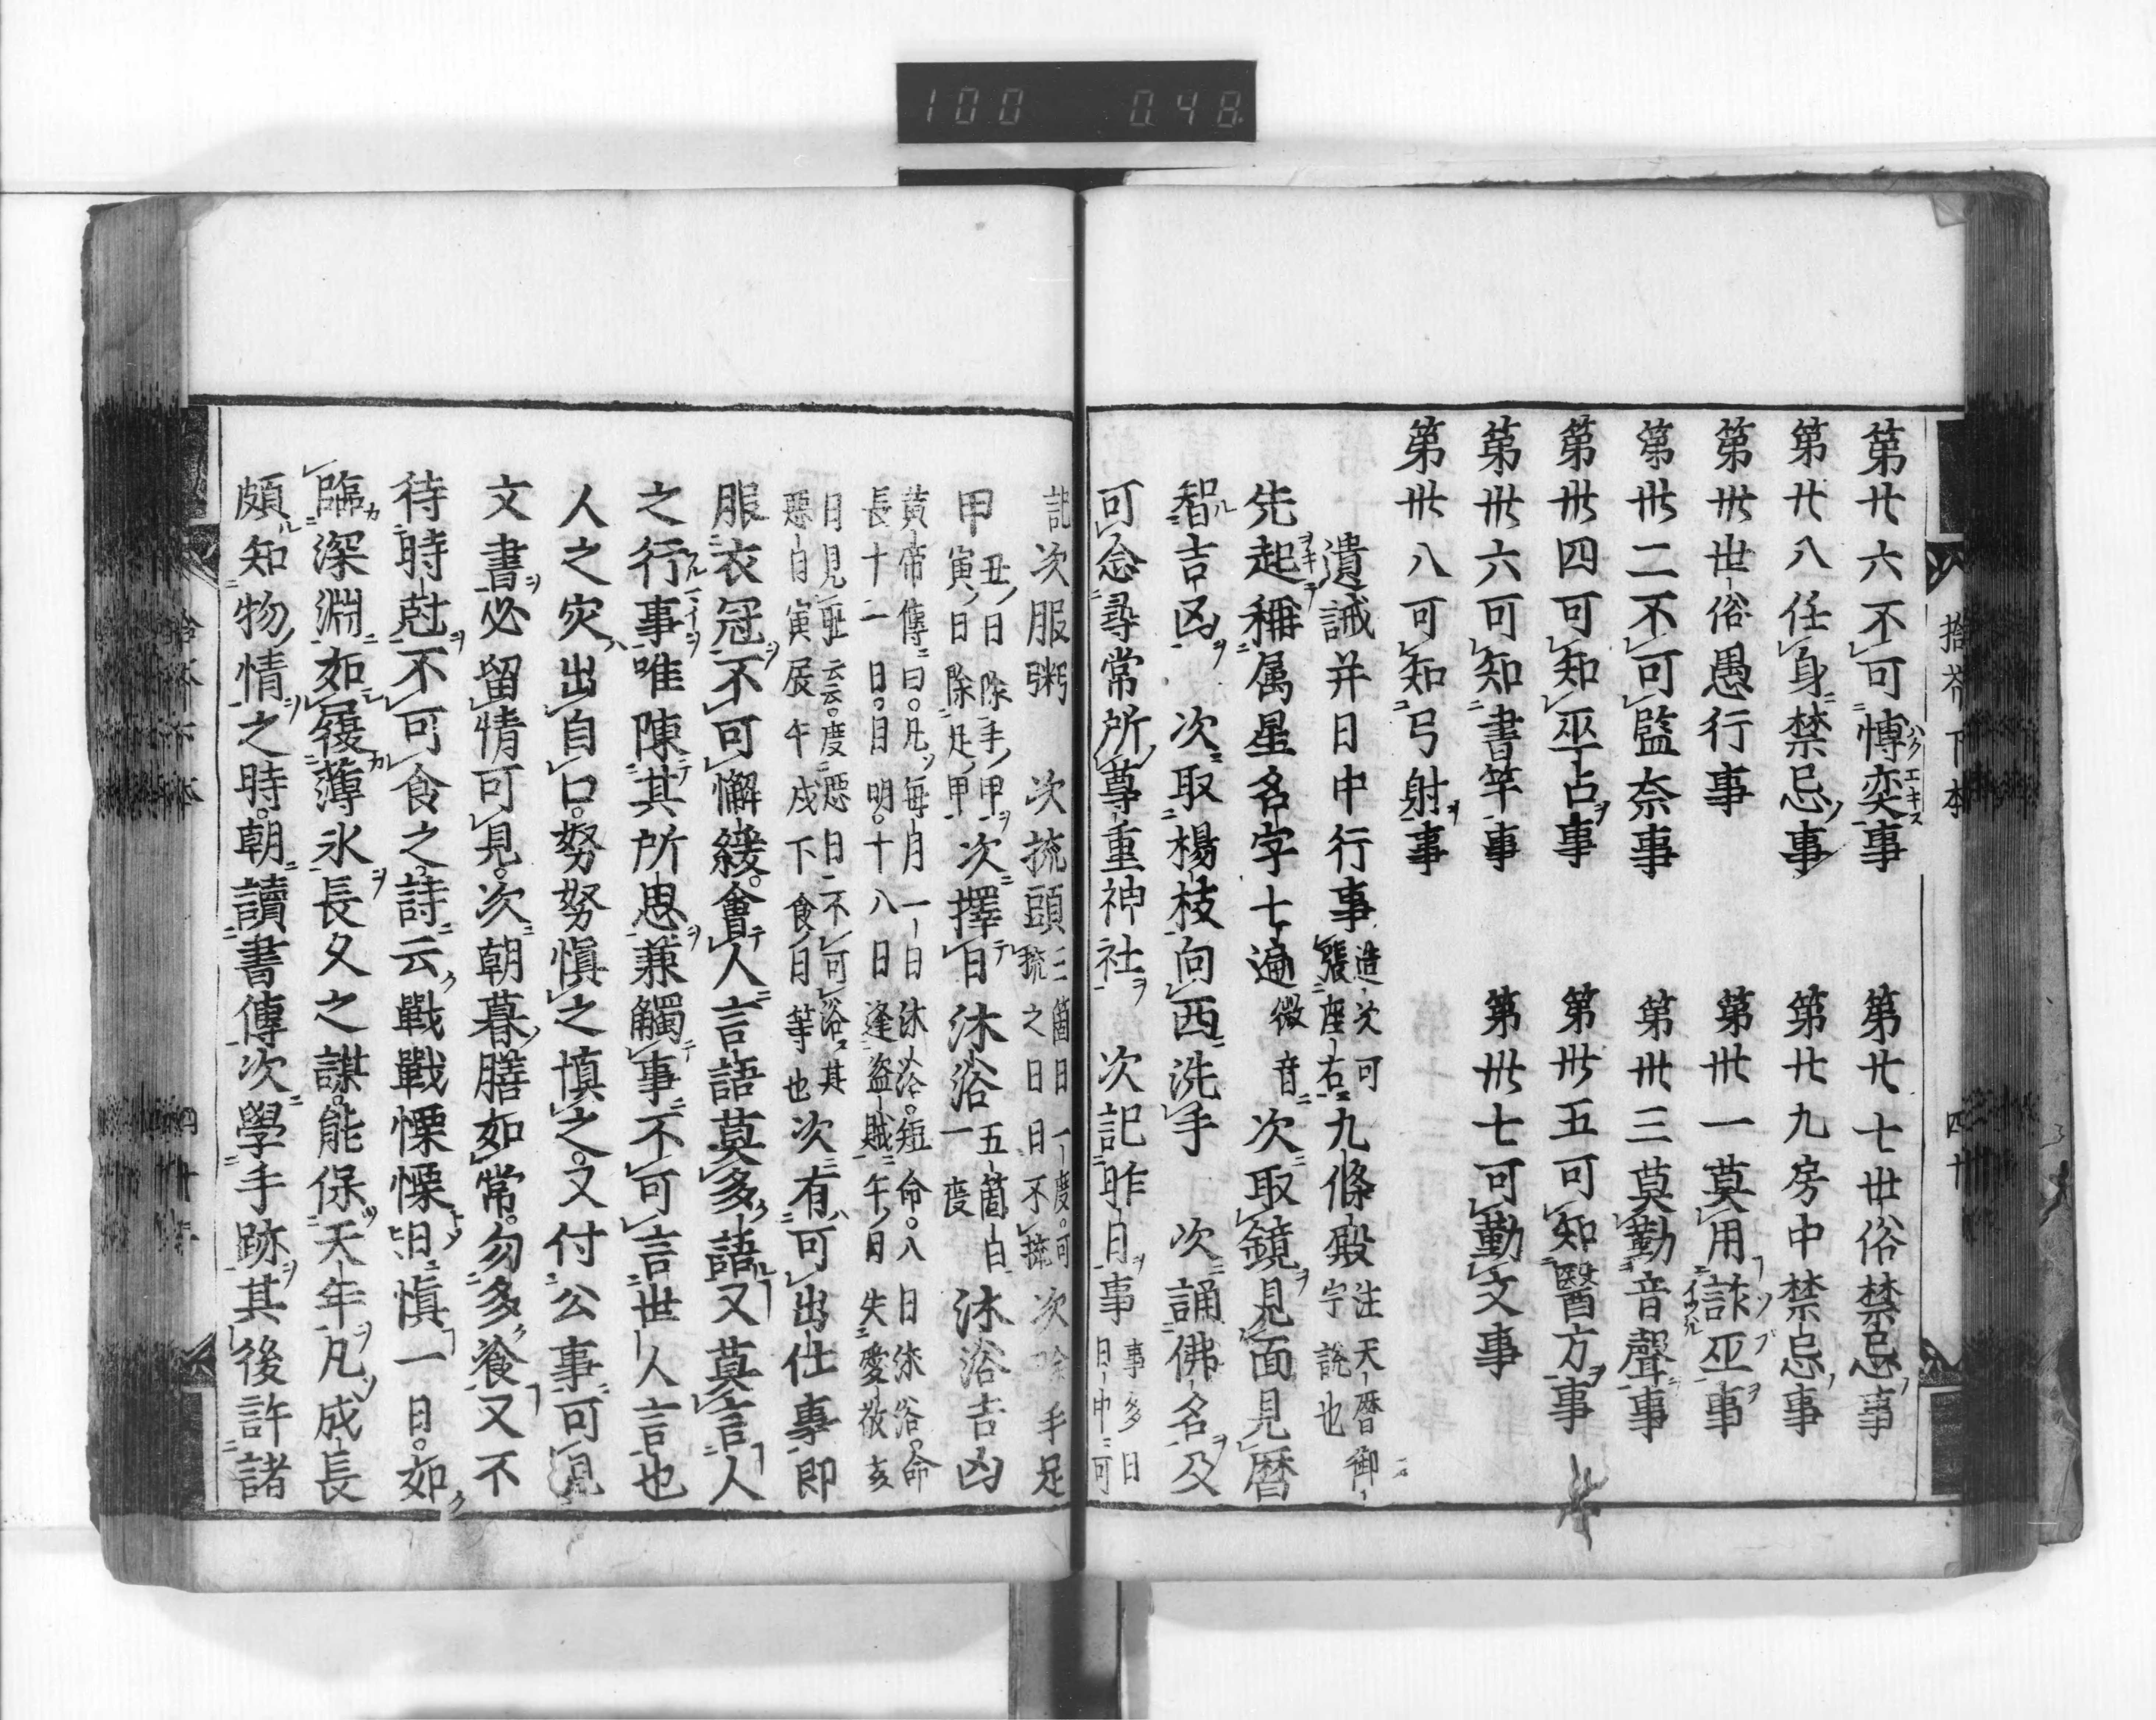 100 0.48
第廿六不可博奕事 第廿七世俗禁忌事
第廿八任身禁忌事 第廿九房中禁忌事
第卅世俗愚行事 第卅一莫用詐巫事
第卅二不可監奈事 第卅三莫勤音聲事
第卅四可知巫占事 第卅五可知醫方事
第卅六可知書竿事 第卅七可勤文事
第卅八可知弓射事
遺誡并日中行事 造次可張座右 九條殿 注天暦御字説也
先起稱属星名字七遍 微音 次取鏡見面見暦
智吉凶 次取楊枝向西洗手 次誦佛名及
可念尋常所尊重神社 次記昨日事 事多日日中可
記 次服粥 次梳頭 三箇日一度可梳之日日不梳 次除手足
甲 丑日除手甲寅日除足甲 次擇日沐浴 五箇日一度 沐浴吉凶
黄帝傳曰凡毎月一日沐浴短命八日沐浴命
長十一日目明十八日逢盗賊午日失愛敬亥
日見耻云云度惡日不可浴其
惡日寅辰午戌下食日等也 次有可出仕事即
服衣冠不可懈緩會人言語莫多語又莫言人
之行事唯陳其所思兼觸事不可言世人言也
人之灾出自口努努愼之愼之又付公事可見
文書必留情可見次朝暮膳如常勿多飡又不
待時尅不可食之詩云戰戰慄慄日愼一日如
臨深淵如履薄氷長久之謀能保天年凡成長
頗知物情之時朝讀書傳次學手跡其後許諸
拾芥下本 四十